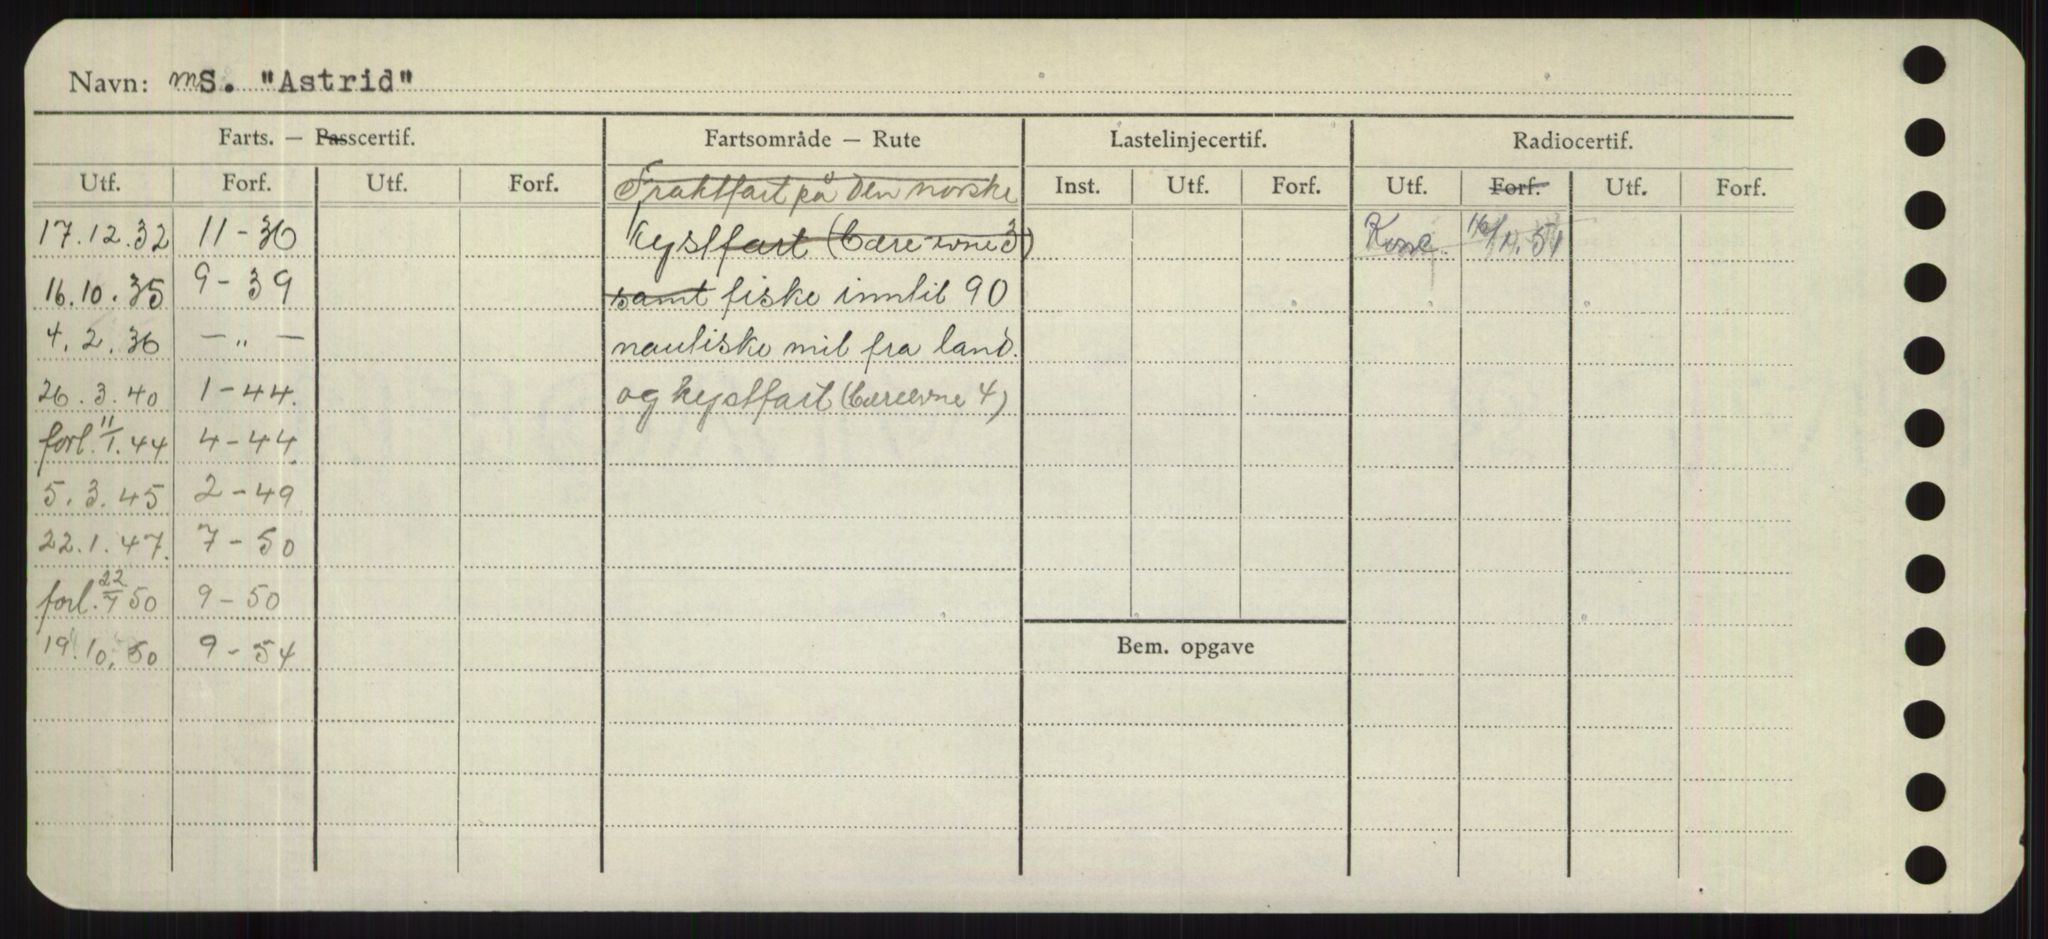 Navn: MS. "Astrid"
Farts. — Passcertif. Fartsområde — Rute Lastelinjecertif. Radiocertif.
Utf. Forf. Utf. Forf. Fraktfart på den norske Inst. Utf. Forf. Utf. Forf. Utf. Forf.
17.12.32 11-36 Kystfart (Bæreevne 3) 16/11.51
16.10.35 9-39 samt fiske inntil 90
4.2.36 —"— nautiske mil fra land.
26.3.40 1-44. og kystfart (Bæreevne 4)
forl. 11/1.44 4-44
5.3.45 2-49
22.1.47. 7-50
forl. 22/7 50 9-50
19.10.50 9-54 Bem. opgave